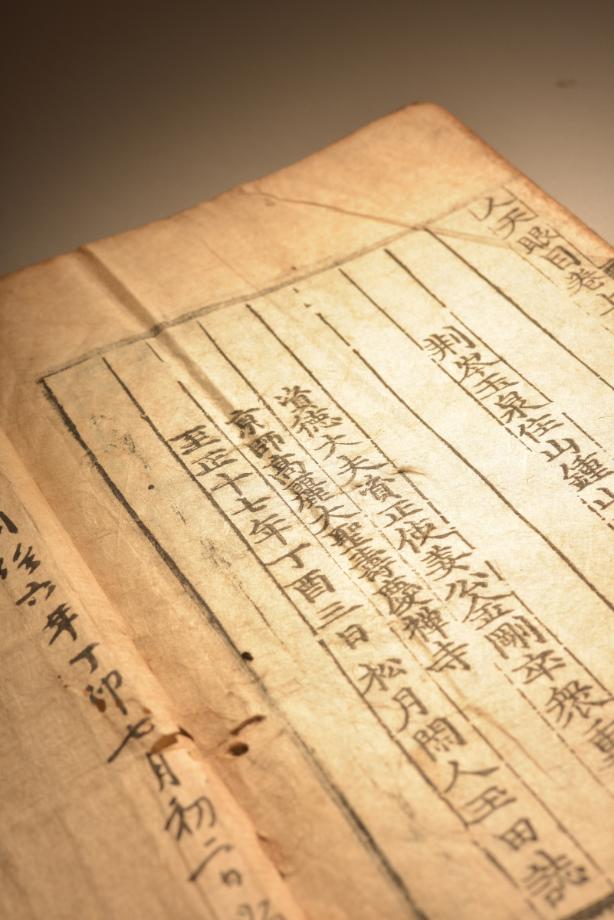 人天眼目卷
荆岑玉泉住山鍾山
資德大夫資正使姜公金剛卒衆重
京師高麗大聖壽慶禪寺
至正十七年丁酉三日 松月閑人玉田誌
六年丁卯七月初二日